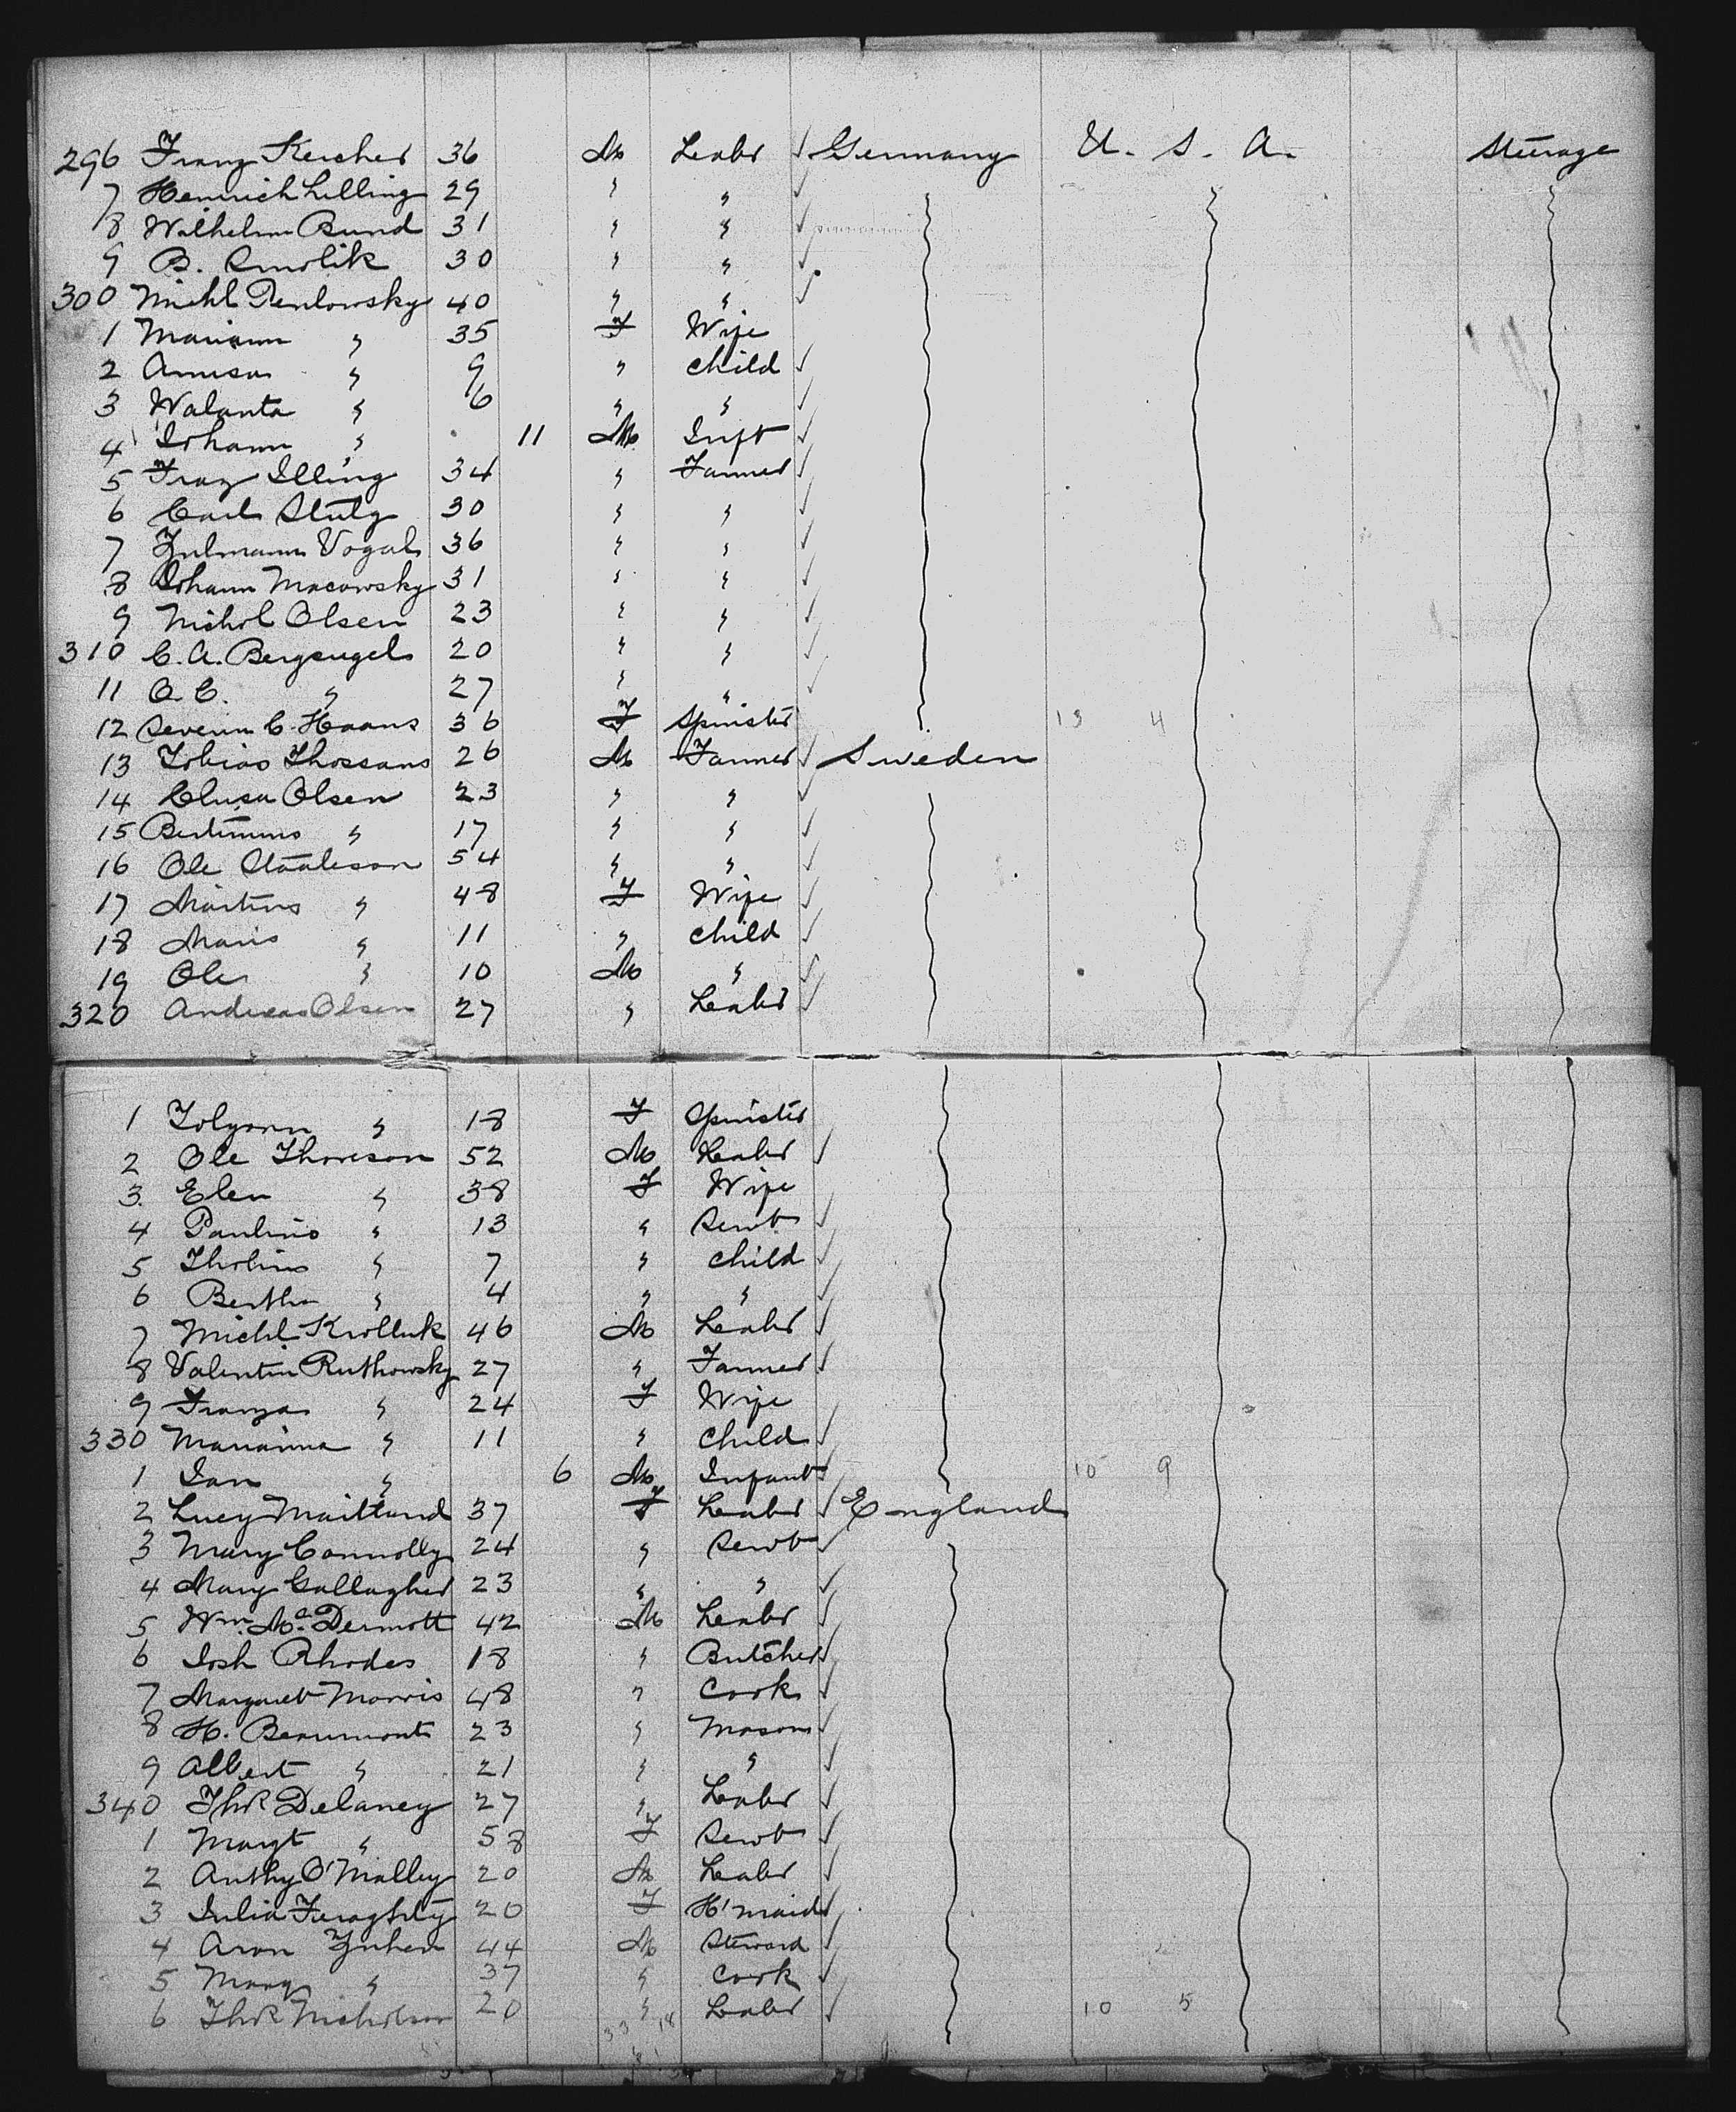 296 Franz Kercher 36 M Labr ✓ Germany U. S. A. Steerage
7 Heinrich Lilling 29 " " ✓
8 Wilhelm Bund 31 " " ✓
9 B. Smolik 30 " " ✓
300 Michl Penlowsky 40 " " ✓
1 Mariann " 35 F Wife
2 " 9 " Child ✓
3 Walanta " 6 " " ✓
4 Johann " 11 M Inft ✓
5 Franz Illing 34 " Farmer ✓
6 Carl 30 " " ✓
7 Vogal 36 " " ✓
8 Johann Macowsky 31 " " ✓
9 Nichol Olsen 23 " " ✓
310 C. A. Bergsugel 20 " " ✓
11 O. C. " 27 " " ✓
12 Severin C. Haans 36 F Spinster 13 4
13 Tobias Thossans 26 M Farmer ✓ Sweden
14 Olsen 23 " " ✓
15 " 17 " " ✓
16 Ole Staaleson 54 " " ✓
17 Martins " 48 F Wife ✓
18 Maris " 11 " Child ✓
19 Ole " 10 M " ✓
320 Andreas Olsen 27 " Labr ✓
1 " 18 F Spinster
2 Ole Thoreson 52 M Labr ✓
3 Elen " 38 F Wife
4 Paulins " 13 " Servt ✓
5 Tholins " 7 " Child ✓
6 Bertha " 4 " " ✓
7 Michl Krolluk 46 M Labr ✓
8 Valentin Ruthowsky 27 " Farmer ✓
9 Franza " 24 F Wife
330 Marianna " 11 " Child ✓
1 Jan " 6 M Infant ✓ 10 9
2 Lucy Maitland 37 F Labr ✓ England
3 Mary Connolly 24 " Servt ✓
4 Mary Gallagher 23 " " ✓
5 Wm. Mc Dermott 42 M Labr ✓
6 Josh Rhodes 18 " Butcher ✓
7 Margaret Morris 48 " Cook ✓
8 H. Beaumont 23 " Mason ✓
9 Albert " 21 " " ✓
340 Thos Delaney 27 " Labr ✓
1 Margt " 58 F Servt ✓
2 Anthy O'Malley 20 M Labr ✓
3 Julia Feraghty 20 F H'maid ✓
4 Aron 44 M Steward ✓
5 Mary " 37 " Cook ✓
6 Thos Nicholson 20 " Labr ✓ 10 5
33 18